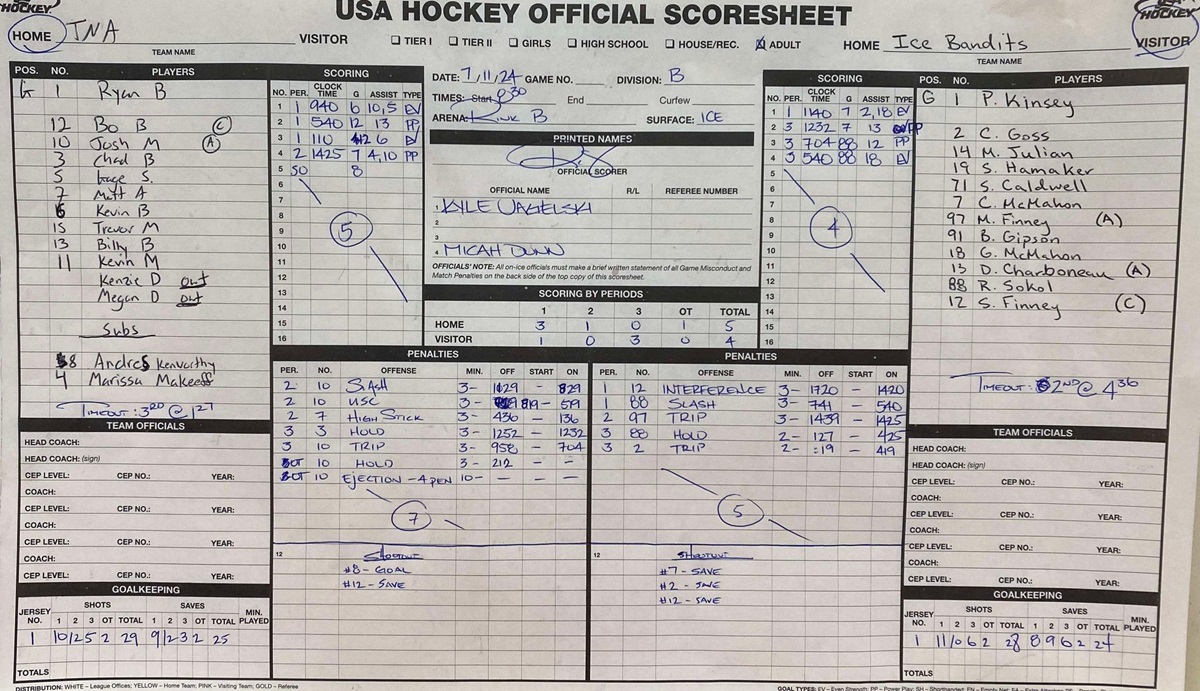 HOCKEY.
USA HOCKEY OFFICIAL SCORESHEET
HOCKEY
HOME TNA
TEAM NAME
VISITOR
TIER I TIER II GIRLS HIGH SCHOOL HOUSE/REC. ADULT
HOME Ice Bandits
TEAM NAME
VISITOR
POS. NO. PLAYERS
G 1 Ryan B
12 Bo B C
10 Josh M A
3 Chad B
5 Gage S.
7 Matt A
6 Kevin B
15 Trevor M
13 Billy B
11 Kevin M
Kenzie D out
Megan D out
Subs
8 Andres Kenworthy
4 Marissa Makeeff
TIMEOUT: 3RD @ 1 27
SCORING
NO. PER. CLOCK TIME G ASSIST TYPE
1 1 940 6 10,5 EV
2 1 540 12 13 PP
3 1 110 12 6 EV
4 2 1425 7 4,10 PP
5 SO 8
6
7
8
9
10
11
12
13
14
15
16
5
DATE: 7/11/24 GAME NO. DIVISION: B
TIMES: Start 830 End Curfew
ARENA: RINK B SURFACE: ICE
PRINTED NAMES
OFFICIAL SCORER
OFFICIAL NAME R/L REFEREE NUMBER
1 KYLE UAGELSKI
2
3
4 MICAH DUNN
OFFICIALS' NOTE: All on-ice officials must make a brief written statement of all Game Misconduct and
Match Penalties on the back side of the top copy of this scoresheet.
SCORING BY PERIODS
1 2 3 OT TOTAL
HOME 3 1 0 1 5
VISITOR 1 0 3 0 4
SCORING
NO. PER. CLOCK TIME G ASSIST TYPE
1 1 1140 7 2,18 EV
2 3 1232 7 13 PP
3 3 704 88 12 PP
4 3 540 88 18 EV
5
6
7
8
9
10
11
12
13
14
15
16
4
POS. NO. PLAYERS
G 1 P. Kinsey
2 C. Goss
14 M. Julian
19 S. Hamaker
71 S. Caldwell
7 C. McMahon
97 M. Finney (A)
91 B. Gipson
18 G. McMahon
13 D. Charboneau (A)
88 R. Sokol
12 S. Finney (C)
TIMEOUT: 2ND @ 4 36
PENALTIES
PER. NO. OFFENSE MIN. OFF START ON
2 10 SLASH 3- 1129 - 829
2 10 USC 3- 819 - 519
2 7 HIGH STICK 3- 436 - 136
3 3 HOLD 3- 1252 - 1232
3 10 TRIP 3- 958 - 704
OT 10 HOLD 3- 212 - -
OT 10 EJECTION - 4 PEN 10- - - -
7
12
SHOOTOUT
#8 - GOAL
#12 - SAVE
PENALTIES
PER. NO. OFFENSE MIN. OFF START ON
1 12 INTERFERENCE 3- 1720 - 1420
1 88 SLASH 3- 741 - 540
2 97 TRIP 3- 1439 - 1425
3 88 HOLD 2- 127 - 425
3 2 TRIP 2- :19 - 419
5
12
SHOOTOUT
#7 - SAVE
#2 - SAVE
#12 - SAVE
TEAM OFFICIALS
HEAD COACH:
HEAD COACH: (sign)
CEP LEVEL: CEP NO.: YEAR:
COACH:
CEP LEVEL: CEP NO.: YEAR:
COACH:
CEP LEVEL: CEP NO.: YEAR:
COACH:
CEP LEVEL: CEP NO.: YEAR:
GOALKEEPING
JERSEY NO. SHOTS 1 2 3 OT TOTAL SAVES 1 2 3 OT TOTAL MIN. PLAYED
1 10 12 5 2 29 9 12 3 2 25
TOTALS
TEAM OFFICIALS
HEAD COACH:
HEAD COACH: (sign)
CEP LEVEL: CEP NO.: YEAR:
COACH:
CEP LEVEL: CEP NO.: YEAR:
COACH:
CEP LEVEL: CEP NO.: YEAR:
COACH:
CEP LEVEL: CEP NO.: YEAR:
GOALKEEPING
JERSEY NO. SHOTS 1 2 3 OT TOTAL SAVES 1 2 3 OT TOTAL MIN. PLAYED
1 11 10 6 2 28 8 9 6 2 24
TOTALS
DISTRIBUTION: WHITE – League Offices; YELLOW – Home Team; PINK – Visiting Team; GOLD – Referee